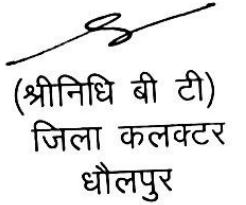 (श्रीनिधि बी टी)
जिला कलक्टर
धौलपुर